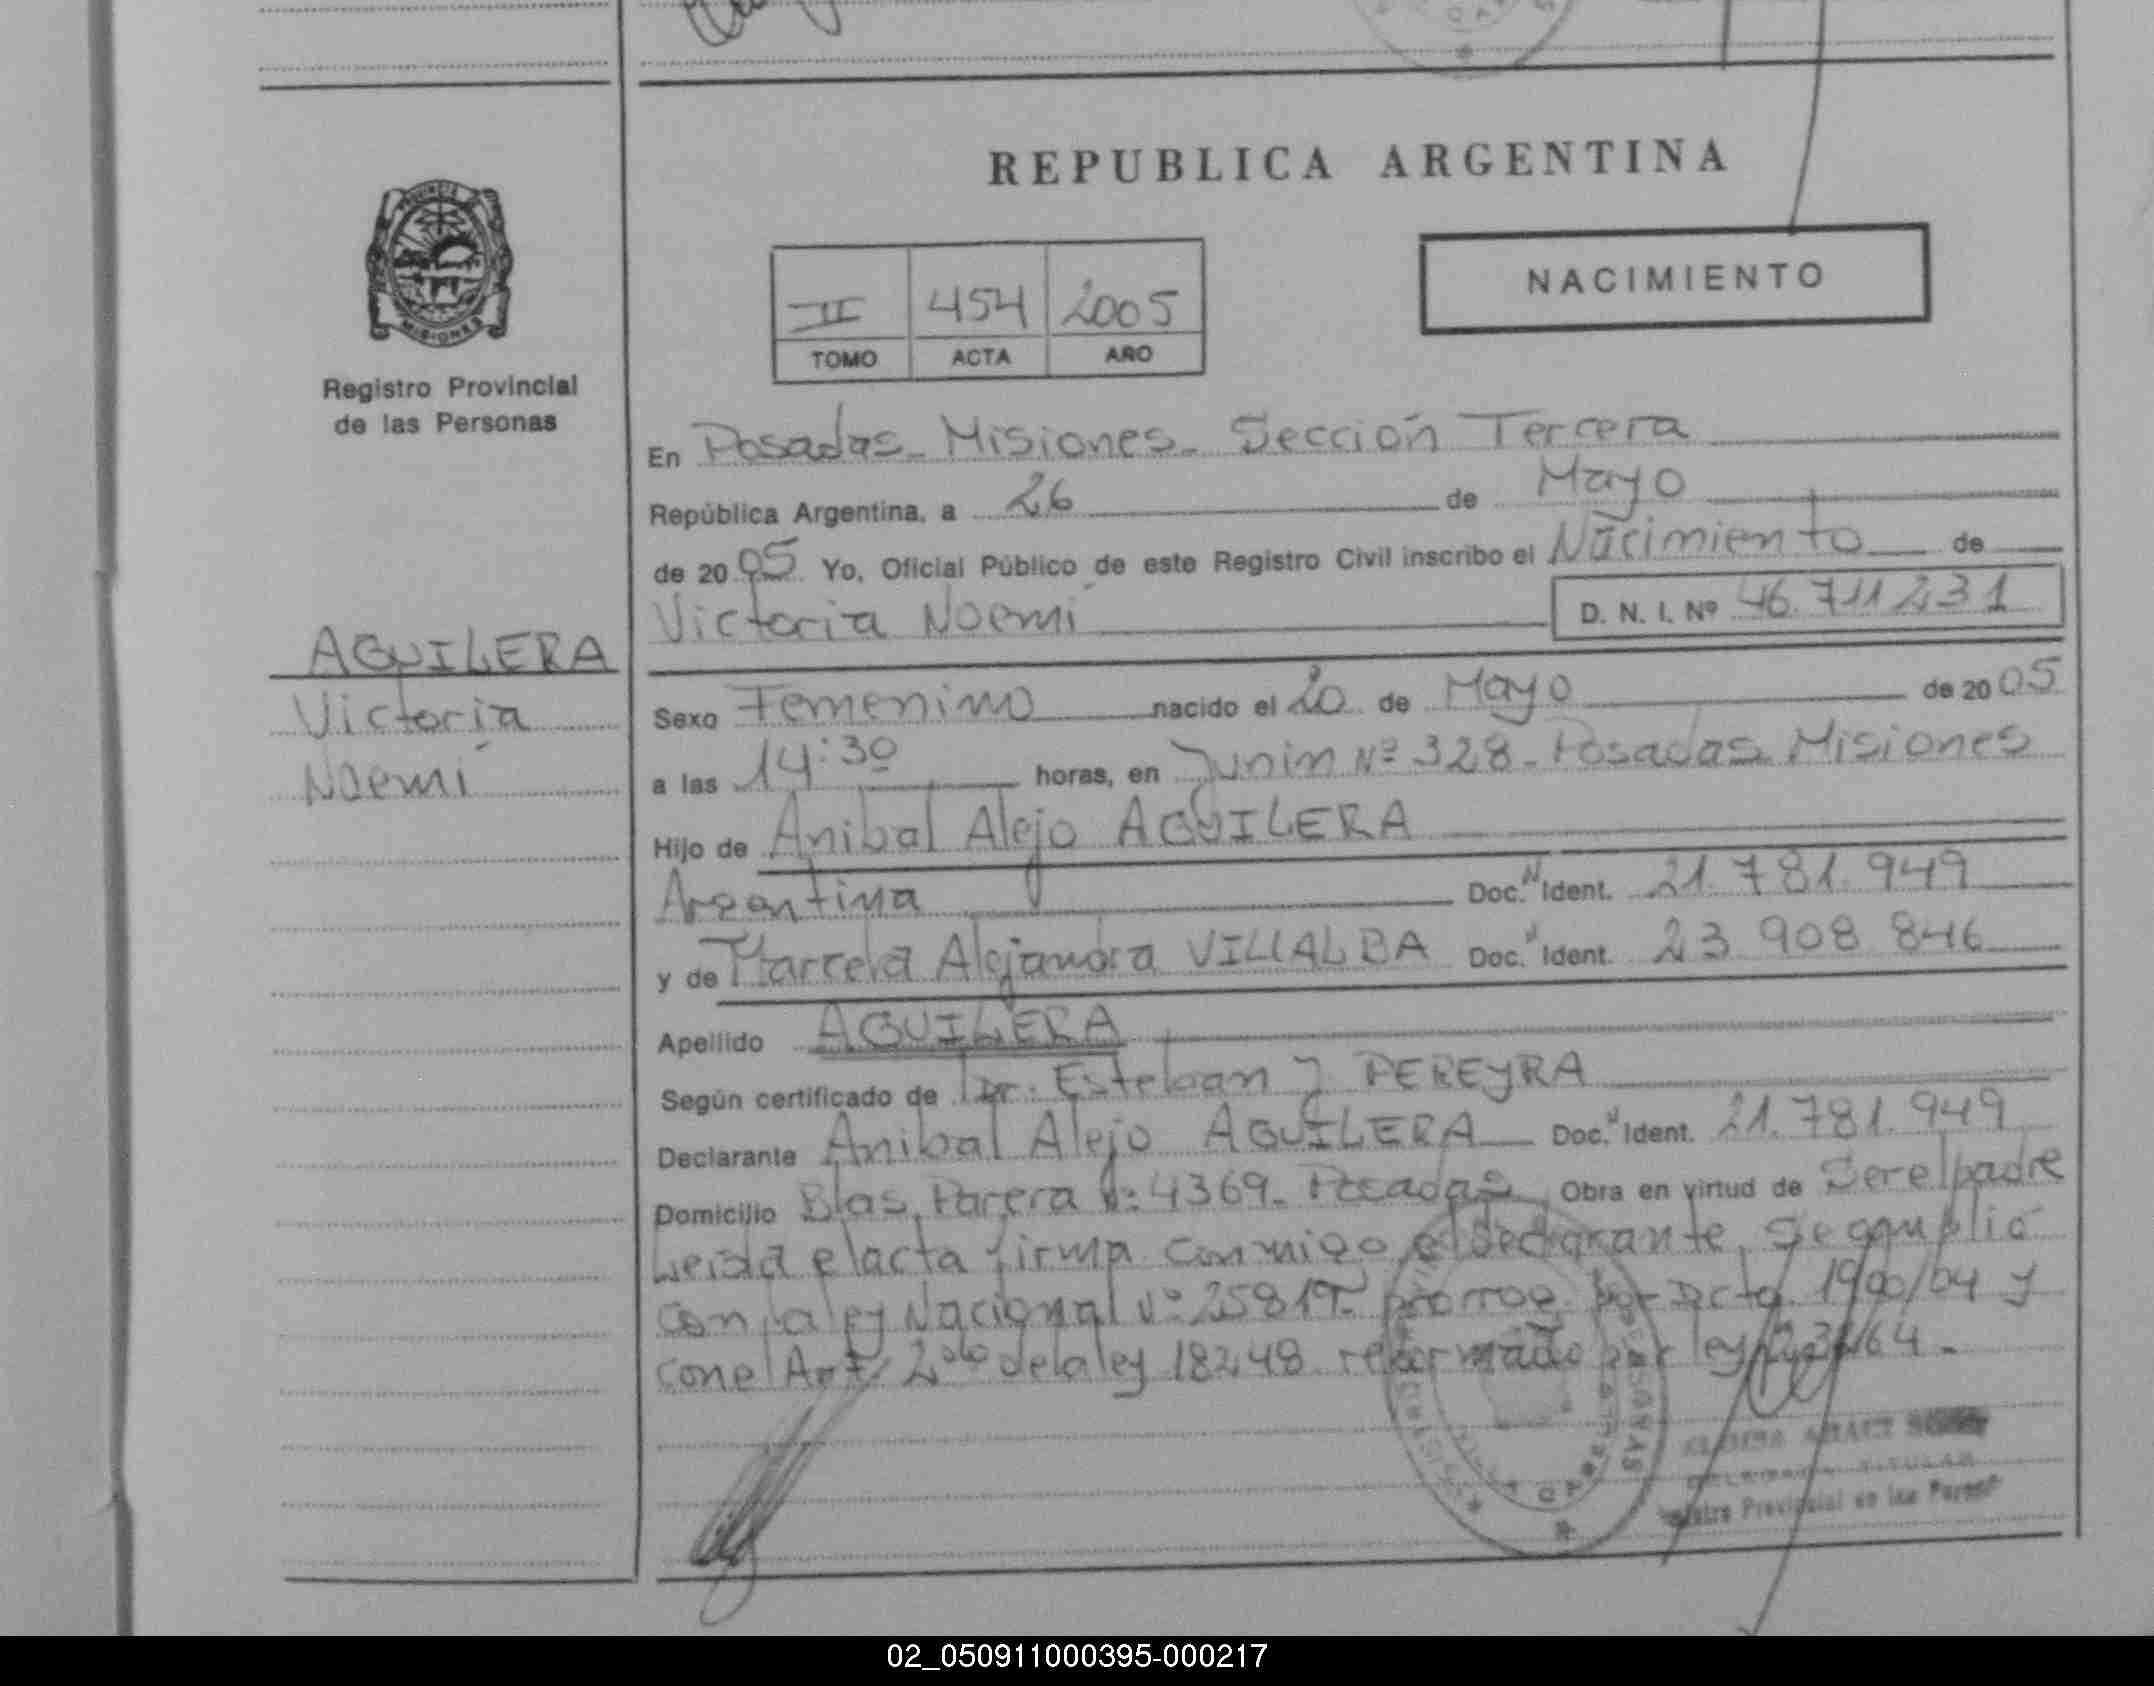 REPUBLICA ARGENTINA
PROVINCIA
MISIONES
Registro Provincial
de las Personas
NACIMIENTO
II 454 2005
TOMO ACTA AÑO
En Posadas - Misiones - Sección Tercera
República Argentina, a 26 de Mayo
de 2005 Yo, Oficial Público de este Registro Civil inscribo el Nacimiento de
Victoria Noemí D. N. I. Nº 46.711.231
AGUILERA
Victoria
Noemí
Sexo Femenino nacido el 20 de Mayo de 2005
a las 14:30 horas, en Junin Nº 328 - Posadas Misiones
Hijo de Anibal Alejo AGUILERA
Argentina Doc. N Ident. 21.781.949
y de Marcela Alejandra VILLALBA Doc. N Ident. 23.908.846
Apellido AGUILERA
Según certificado de Dr. Esteban J PEREYRA
Declarante Anibal Alejo AGUILERA Doc. N Ident. 21.781.949
Domicilio Blas Parera Nº 4369 - Posadas Obra en virtud de Ser el padre
Leida el acta firma conmigo el declarante, Se cumplió
con la ley Nacional Nº 25819 - prorrog. por Dcto. 1900/04 y
con el Art. 2do de la ley 18248 reformado por ley 23264.-
Registro Provincial de las Personas
02_050911000395-000217